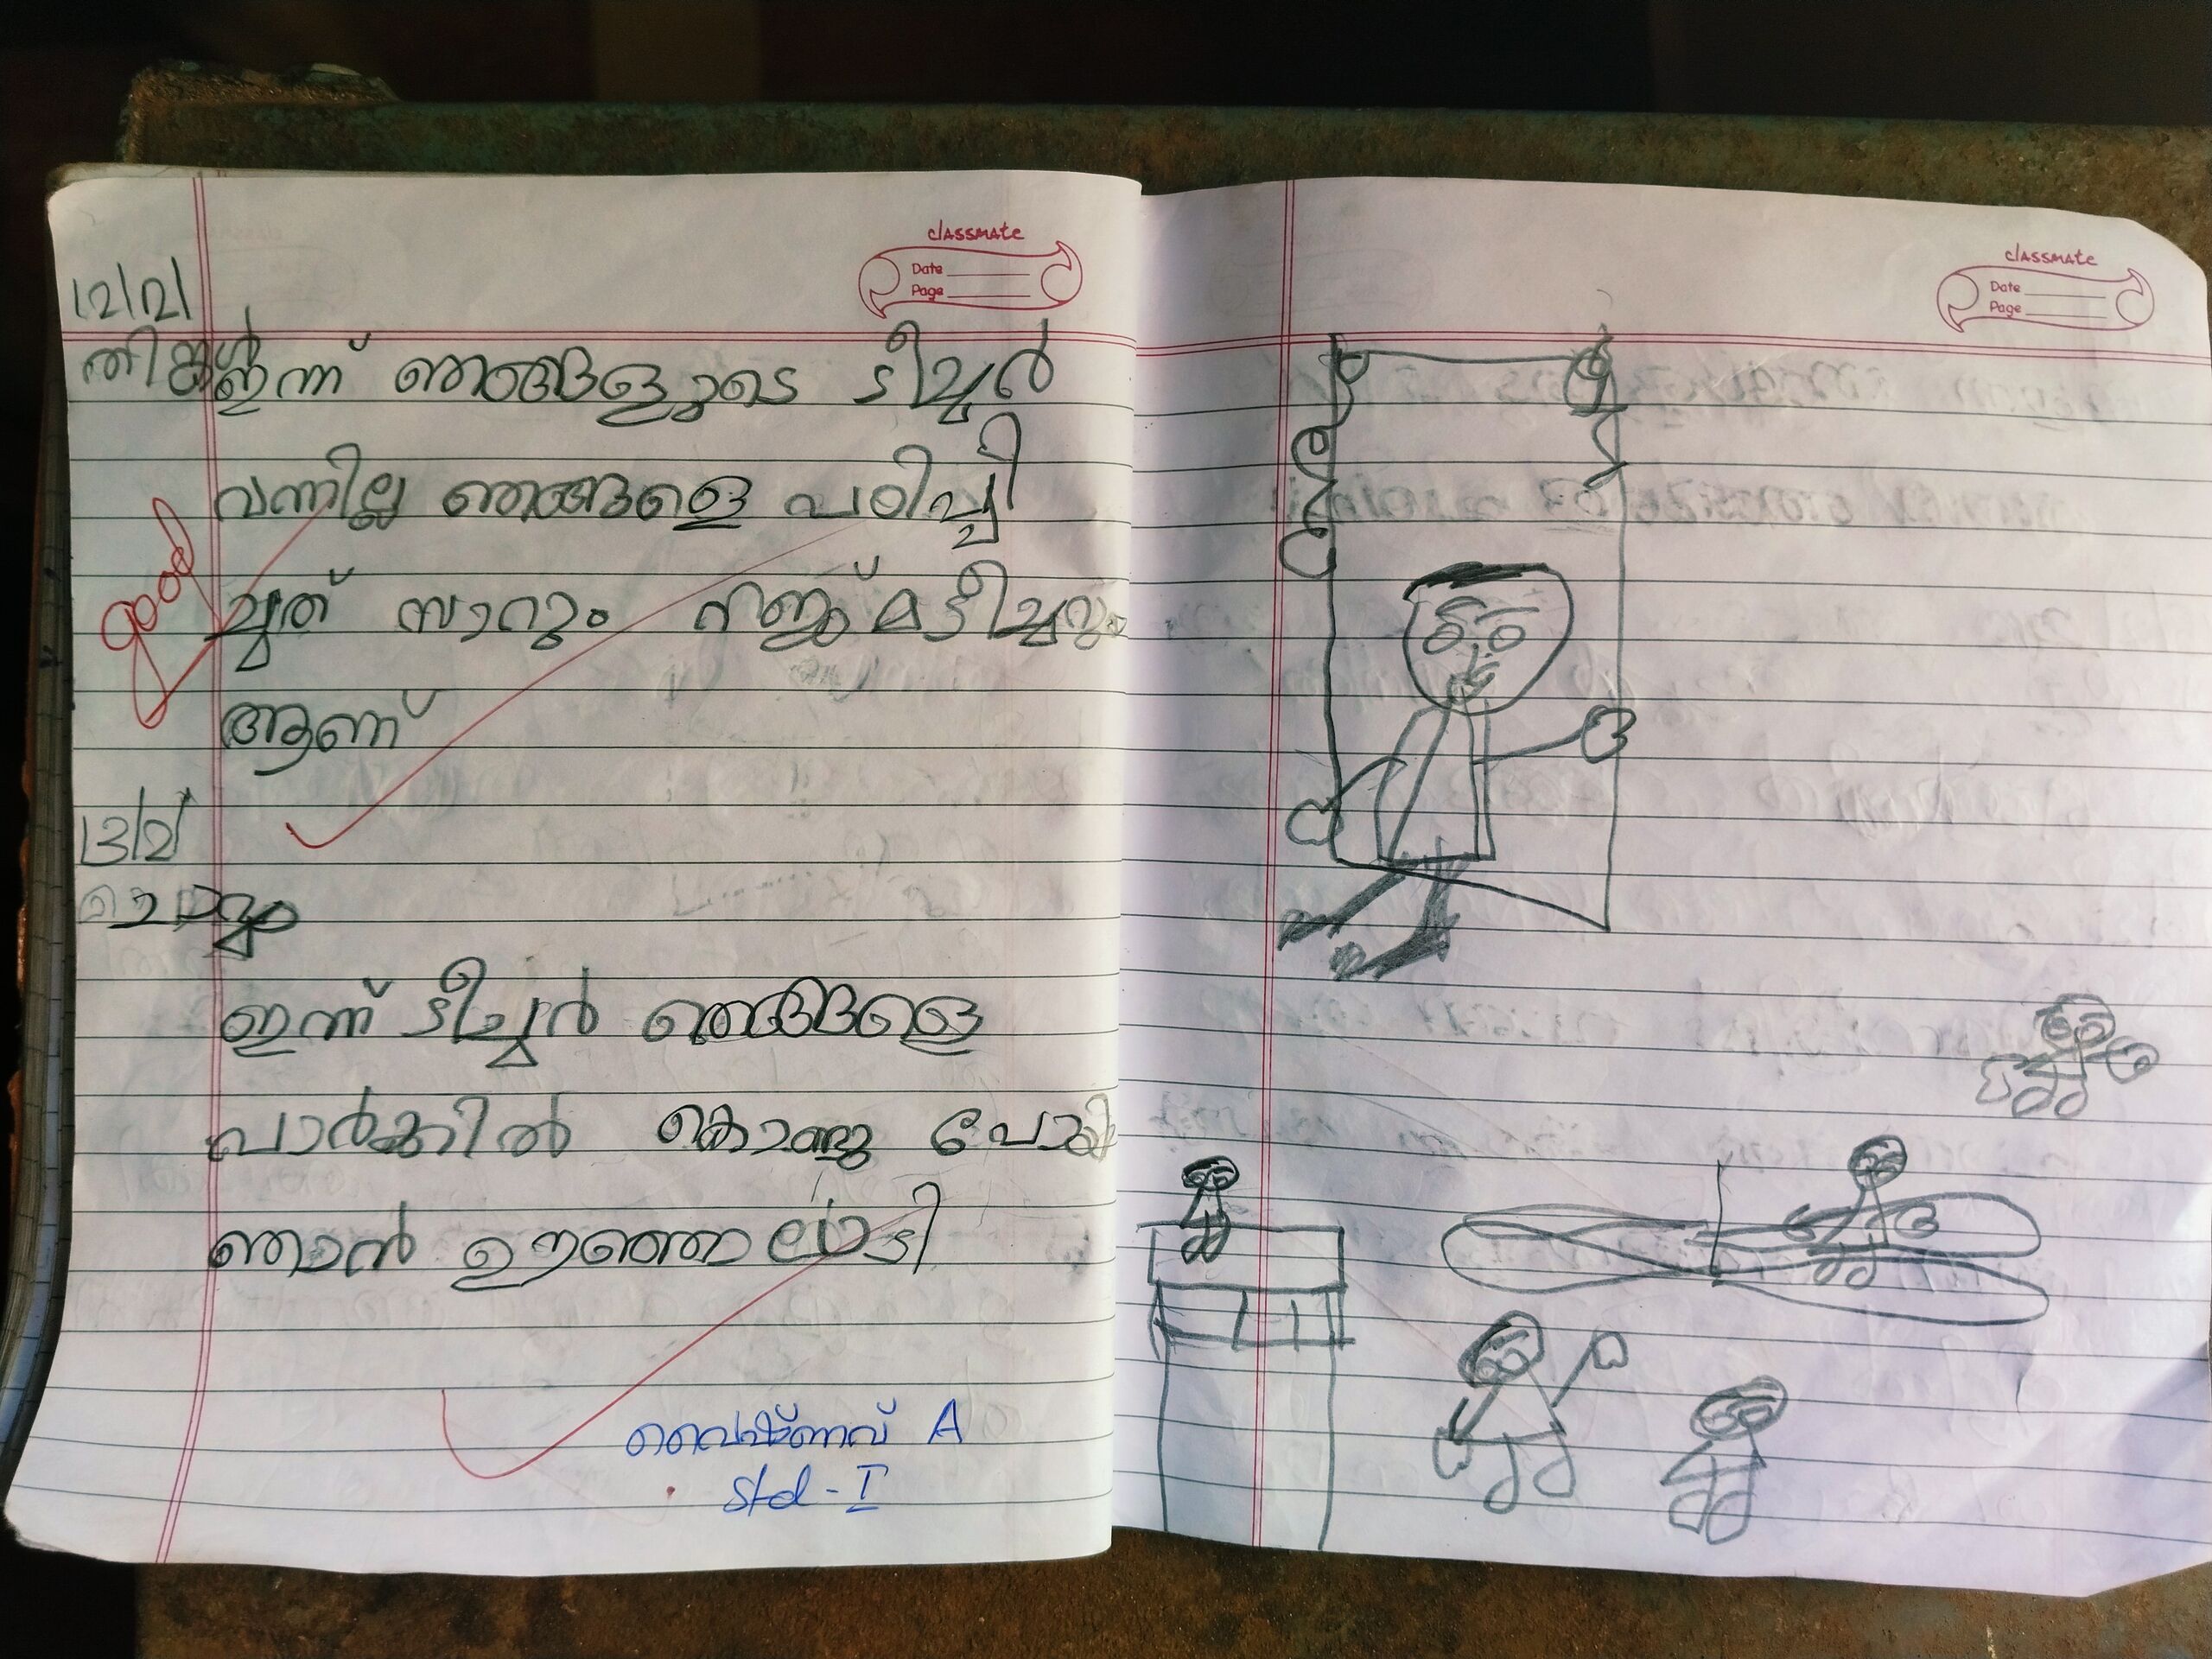 classmate
Date
Page
12/2/
തിങ്കൾ
ഇന്ന് ഞങ്ങളുടെ ടീച്ചർ
വന്നില്ല ഞങ്ങളെ പഠിപ്പി
ച്ചത് സാറും ടീച്ചറും
ആണ്
good
13/2/
ചൊവ്വ
ഇന്ന് ടീച്ചർ ഞങ്ങളെ
പാർക്കിൽ കൊണ്ടു പോയി
ഞാൻ ഊഞ്ഞൊലാടി
വൈഷ്ണവ് A
Std - I
classmate
Date
Page